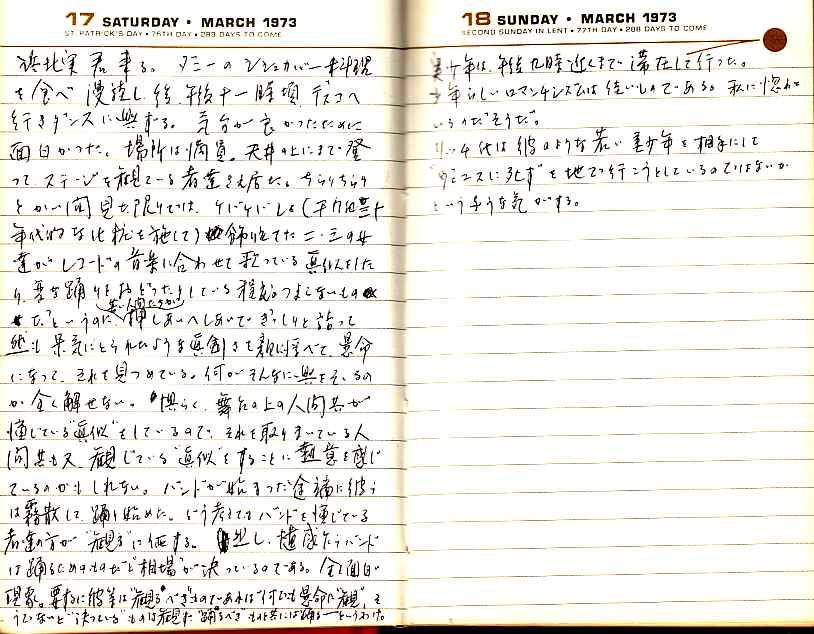 17 SATURDAY • MARCH 1973
ST. PATRICK'S DAY • 76TH DAY • 289 DAYS TO COME
君来る。 タニーのシシカバー料理
を食べ 後、午後十一時頃、デスコへ
行きダンスに興ずる。 気分が良かったために
面白かった。 場所は満員。天井の上にまで登
って、ステージを観ている者達さえ居た。ちらりちらり
とかい間見た限りでは、ケバケバしく(
年代的な化粧を施して) 飾り立てた二・三の女
達がレコードの音楽に合わせて歌っている真似をした
り、変な踊りをおどったりしている 。つまらないもの
だ。というのに、 押しあいへしあいでぎっしりと詰って
然も呆気にとられたような真剣さで 懸命
になって、それを見つめている。何がそんなに興をそゝるの
か全く解せない。 恐らく、舞台の上の人間共が
演じている“真似”をしているので、それを取りまいている人
間共も又、観じている“真似”をすることに熱意を感じ
ているのかもしれない。バンドが始まった途端に彼らは
は霧散して、踊り始めた。どう考えてもバンドを演じている
者達の方が“観る”に価する。 但し、遺憾乍らバンド
は踊るためのものだと“相場”が決っているのである。全く面白い
現象。要するに彼等は“観るべき”ものであれば“何でも懸命に観”、そ
うでないと“決っている”ものは観ず“踊るべき”ものと共には踊る―というわけ。
18 SUNDAY • MARCH 1973
SECOND SUNDAY IN LENT • 77TH DAY • 288 DAYS TO COME
美少年は、午後九時近くまで滞在して行った。
少年らしいロマンチシズムは佳いものである。私に惚れて
いるのだそうだ。
は彼のような若い美少年を相手にして
“ヴェニスに死す”を地で行こうとしているのではないか
というような気がする。